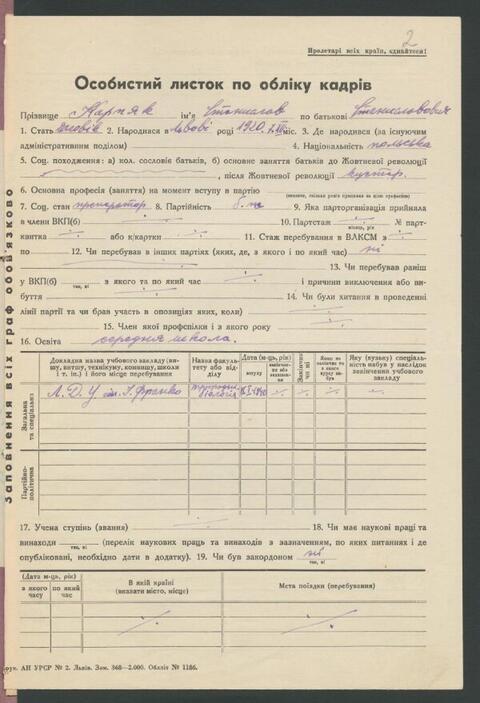 2
Пролетарі всіх країн, єднайтеся!
Особистий листок по обліку кадрів
Прізвище Карпяк ім'я Станислав по батькові Станиславович
1. Стать чоловік 2. Народився в Львові році 1920. місяц. 3. Де народився (за існуючим
адміністративним поділом) 4. Національність польська
5. Соц. походження: а) кол. сословіє батьків, б) основне заняття батьків до Жовтневої революції
, після Жовтневої революції кустар.
6. Основна професія (заняття) на момент вступу в партію
7. Соц. стан препаратор 8. Партійність б.п. 9. Яка парторганізація прийняла
в члени ВКП(б) 10. Партстаж № парт-
місяць, рік
квитка або к/картки 11. Стаж перебування в ВЛКСМ з
по 12. Чи перебував в інших партіях (яких, де, з якого і по який час) ні
13. Чи перебував раніш
у ВКП(б) з якого та по який час і причини виключення або ви-
так, ні
буття 14. Чи були хитання в проведенні
лінії партії та чи брав участь в опозиціях (яких, коли)
15. Член якої профспілки і з якого року
16. Освіта середня школа.
Заповнення всіх граф обов'язково
Докладна назва учбового закладу (ви-
шу, втишу, технікуму, комвишу, школи
і т. ін.) і його місце перебування
Назва факуль-
тету або від-
ділу
Дата (м-ць, рік)
вступу
Закінчив
чи ні
Яку (вузьку) спеціаль-
ність набув у наслідок
закінчення учбового
закладу
Загальна
та спеціальна
Л. Д. У ім. І. Франко
Партійно-
політична
17. Учена ступінь (звання) 18. Чи має наукові праці та
винаходи (перелік наукових праць та винаходів з зазначенням, по яких питаннях і де
так, ні
опубліковані, необхідно дати в додатку). 19. Чи був закордоном ні
так, ні
(Дата м-ць, рік)
з якого
часу
по який
час
В якій країні
(вказати місто, місце)
Мета поїздки (перебування)
рук. АН УРСР № 2. Львів. Зам. 368—2.000. Обліліт № 1186.